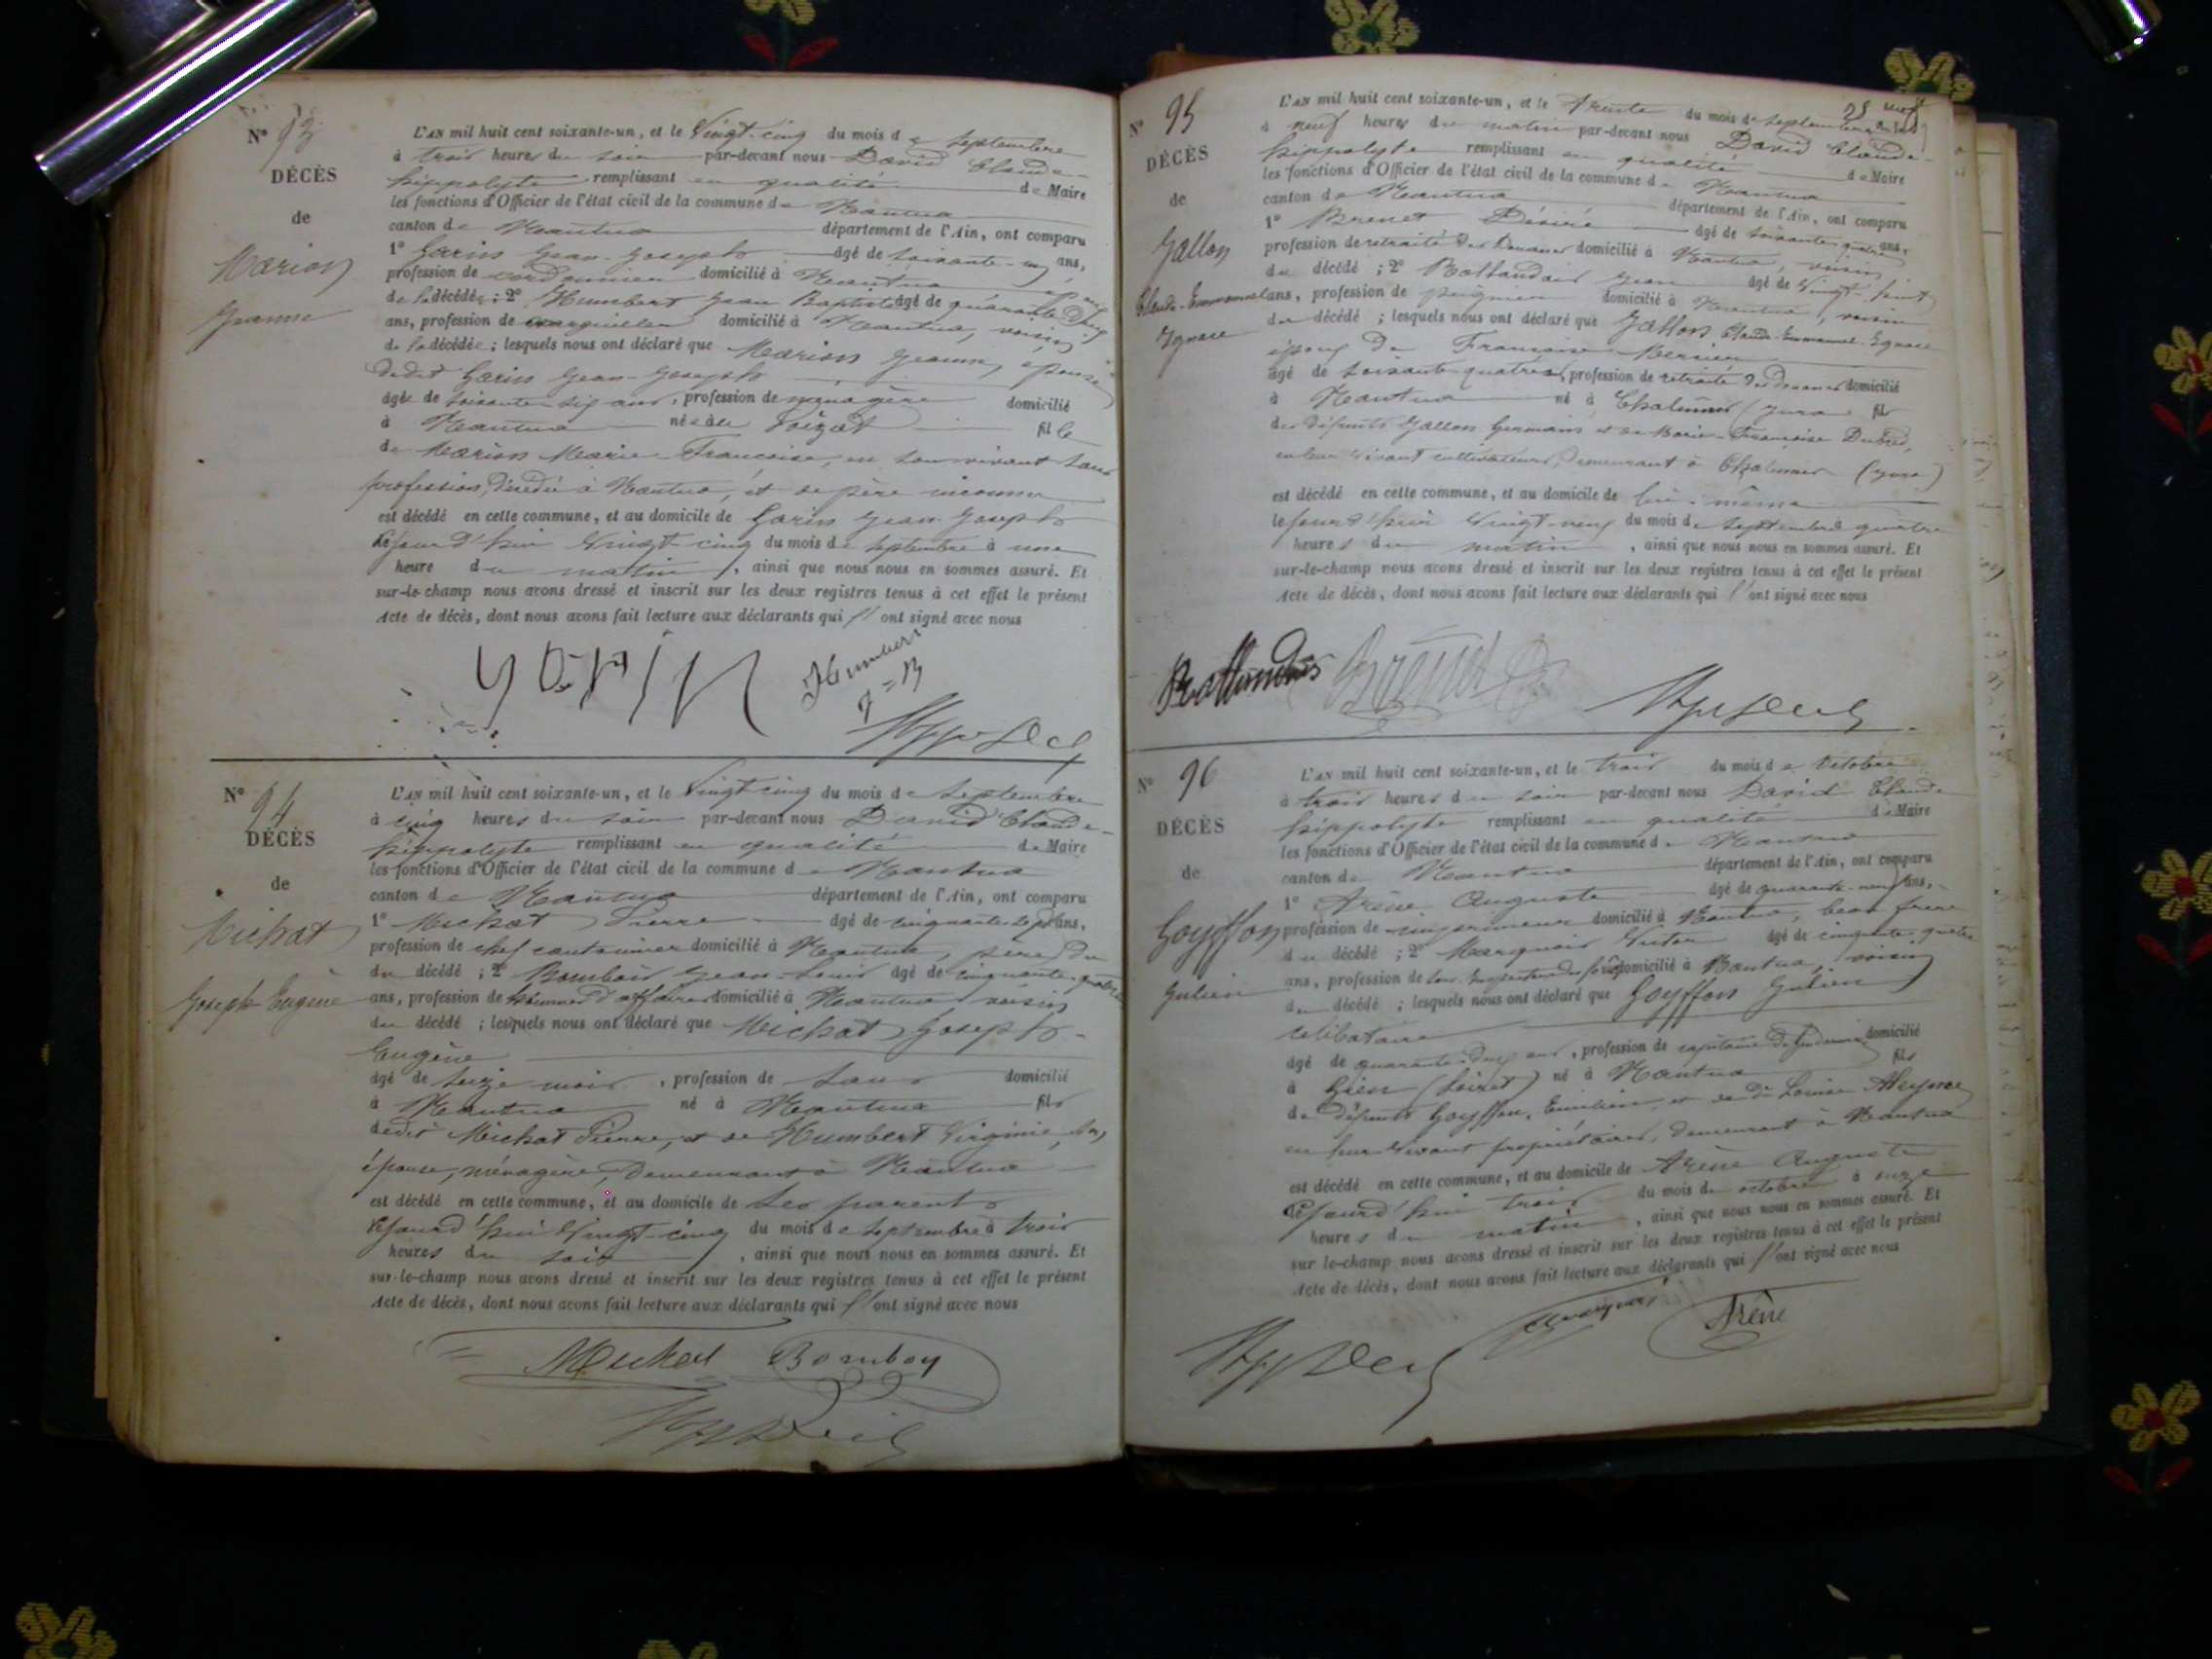 N° 93
DÉCÈS
de
Marion
Jeanne
L'AN mil huit cent soixante-un, et le Vingt-cinq du mois de Septembre
à trois heures du soir par-devant nous David Claude-
hippolyte remplissant en qualité de Maire
les fonctions d'Officier de l'état civil de la commune de Nantua
canton de Nantua département de l'Ain, ont comparu
1° Garin Jean-Joseph âgé de soixante-un ans,
profession de cordonnier domicilié à Nantua
de la décédée ; 2° Humbert Jean Baptiste âgé de quarante-cinq
ans, profession de domicilié à Nantua, voisin
de la décédée ; lesquels nous ont déclaré que Marion Jeanne, épouse
dudit Garin Jean-Joseph
âgée de soixante-six ans, profession de ménagère domicilié
à Nantua née à fille
de Marion Marie Françoise, en son vivant sans
profession, décédée à Nantua, et de père inconnu
est décédé en cette commune, et au domicile de Garin Jean-Joseph
cejourd'hui Vingt-cinq du mois de Septembre à une
heure du matin, ainsi que nous nous en sommes assuré. Et
sur-le-champ nous avons dressé et inscrit sur les deux registres tenus à cet effet le présent
Acte de décès, dont nous avons fait lecture aux déclarants qui l'ont signé avec nous
garin Humbert
J=B
N° 94
DÉCÈS
de
Michat
Joseph-Eugène
L'AN mil huit cent soixante-un, et le Vingt-cinq du mois de Septembre
à cinq heures du soir par-devant nous David Claude-
hippolyte remplissant en qualité de Maire
les fonctions d'Officier de l'état civil de la commune de Nantua
canton de Nantua département de l'Ain, ont comparu
1° Michat Pierre âgé de cinquante-sept ans,
profession de chef cantonnier domicilié à Nantua, père du
du décédé ; 2° Bomboy Jean-Louis âgé de cinquante-quatre
ans, profession de homme d'affaires domicilié à Nantua voisin
du décédé ; lesquels nous ont déclaré que Michat Joseph-
Eugène
âgé de seize mois, profession de sans domicilié
à Nantua né à Nantua fils
dudit Michat Pierre, et de Humbert Virginie, son
épouse, ménagère, demeurant à Nantua
est décédé en cette commune, et au domicile de ses parents
cejourd'hui Vingt-cinq du mois de Septembre à trois
heures du soir, ainsi que nous nous en sommes assuré. Et
sur-le-champ nous avons dressé et inscrit sur les deux registres tenus à cet effet le présent
Acte de décès, dont nous avons fait lecture aux déclarants qui l'ont signé avec nous
Michat Bomboy
N° 95
DÉCÈS
de
Gallon
Claude-Emmanuel
Ignace
L'AN mil huit cent soixante-un, et le Trente du mois de Septembre
à neuf heures du matin par-devant nous David Claude-
hippolyte remplissant en qualité de Maire
les fonctions d'Officier de l'état civil de la commune de Nantua
canton de Nantua département de l'Ain, ont comparu
1° Brenet Désiré âgé de soixante-quatre ans,
profession de retraité des douanes domicilié à Nantua, voisin
du décédé ; 2° Jean âgé de Vingt-huit
ans, profession de peignier domicilié à Nantua, voisin
du décédé ; lesquels nous ont déclaré que Gallon Claude-Emmanuel-Ignace
époux de Françoise Mercier
âgé de soixante-quatre ans, profession de retraité des douanes domicilié
à Nantua né à (Jura) fils
des défunts Gallon Germain et de Marie-Françoise
en leur vivant cultivateurs, demeurant à (Jura)
est décédé en cette commune, et au domicile de lui-même
cejourd'hui Vingt-neuf du mois de Septembre quatre
heures du matin, ainsi que nous nous en sommes assuré. Et
sur-le-champ nous avons dressé et inscrit sur les deux registres tenus à cet effet le présent
Acte de décès, dont nous avons fait lecture aux déclarants qui l'ont signé avec nous
Brenet
N° 96
DÉCÈS
de
Goyffon
Julien
L'AN mil huit cent soixante-un, et le trois du mois de Octobre
à trois heures du soir par-devant nous David Claude
hippolyte remplissant en qualité de Maire
les fonctions d'Officier de l'état civil de la commune de Nantua
canton de Nantua département de l'Ain, ont comparu
1° Arène Auguste âgé de quarante-neuf ans,
profession de imprimeur domicilié à Nantua, beau frère
du décédé ; 2° Marquois Victor âgé de cinquante-quatre
ans, profession de domicilié à Nantua, voisin
du décédé ; lesquels nous ont déclaré que Goyffon Julien
célibataire
âgé de quarante-deux ans, profession de capitaine de gendarmerie domicilié
à Gien (Loiret) né à Nantua fils
de défunts Goyffon, Emilien, et de de Louise
en leur vivant propriétaires, demeurant à Nantua
est décédé en cette commune, et au domicile de Arène Auguste
cejourd'hui trois du mois de octobre à onze
heures du matin, ainsi que nous nous en sommes assuré. Et
sur-le-champ nous avons dressé et inscrit sur les deux registres tenus à cet effet le présent
Acte de décès, dont nous avons fait lecture aux déclarants qui l'ont signé avec nous
Arène